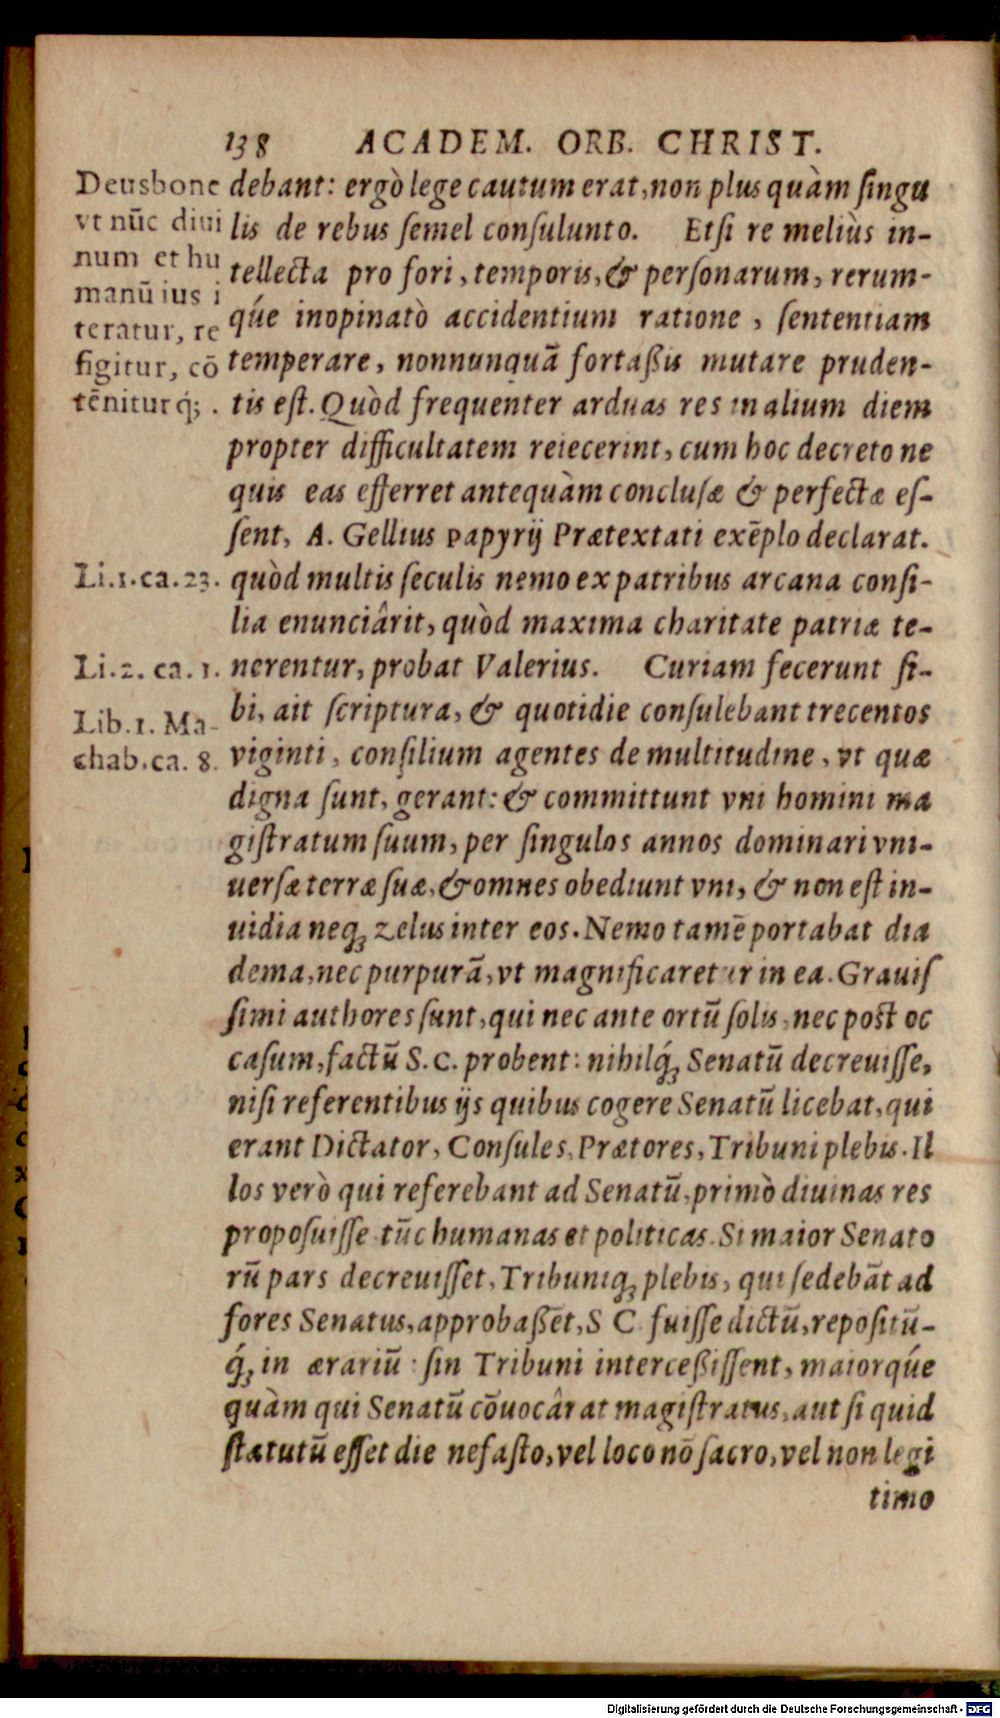 138 ACADEM. ORB. CHRIST.
Deus bone
vt nūc diui
num et hu
manū ius i
teratur, re
figitur, cō
tēnitur q́;.
Li.1.ca.23.
Li.2. ca. 1.
Lib.1. Ma-
chab.ca. 8.
debant: ergò lege cautum erat, non plus quàm ſingu
lis de rebus ſemel conſulunto. Etſi re meliùs in-
tellecta pro fori, temporis, & perſonarum, rerum-
q́ue inopinatò accidentium ratione, ſententiam
temperare, nonnunquā fortaßis mutare pruden-
tis eſt. Quòd frequenter arduas res in alium diem
propter difficultatem reiecerint, cum hoc decreto ne
quis eas efferret antequàm concluſæ & perfectæ eſ-
ſent, A. Gellius Papyrij Prætextati exēplo declarat.
quòd multis ſeculis nemo ex patribus arcana conſi-
lia enunciârit, quòd maxima charitate patriæ te-
nerentur, probat Valerius. Curiam fecerunt ſi-
bi, ait ſcriptura, & quotidie conſulebant trecentos
viginti, conſilium agentes de multitudine, vt quæ
digna ſunt, gerant: & committunt vni homini ma
giſtratum ſuum, per ſingulos annos dominari vni-
uerſæ terræ ſuæ, & omnes obediunt vni, & non eſt in-
uidia neqꝫ zelus inter eos. Nemo tamē portabat dia
dema, nec purpurā, vt magnificaretur in ea. Grauiſ
ſimi authores ſunt, qui nec ante ortū ſolis, nec poſt oc
caſum, factū S.C. probent: nihilq́ꝫ Senatū decreuiſſe,
niſi referentibus ijs quibus cogere Senatū licebat, qui
erant Dictator, Conſules, Prætores, Tribuni plebis. Il
los verò qui referebant ad Senatū, primò diuinas res
propoſuiſſe tūc humanas et politicas. Si maior Senato
rū pars decreuiſſet, Tribuniqꝫ plebis, qui ſedebāt ad
fores Senatus, approbaßēt, S C. fuiſſe dictū, repoſitū-
q́ꝫ in ærariū: ſin Tribuni interceßiſſent, maiorq́ue
quàm qui Senatū cōuocârat magiſtratus, aut ſi quid
ſtatutū eſſet die nefaſto, vel loco nō ſacro, vel non legi
timo
Digitalisierung gefördert durch die Deutsche Forschungsgemeinschaft - DFG